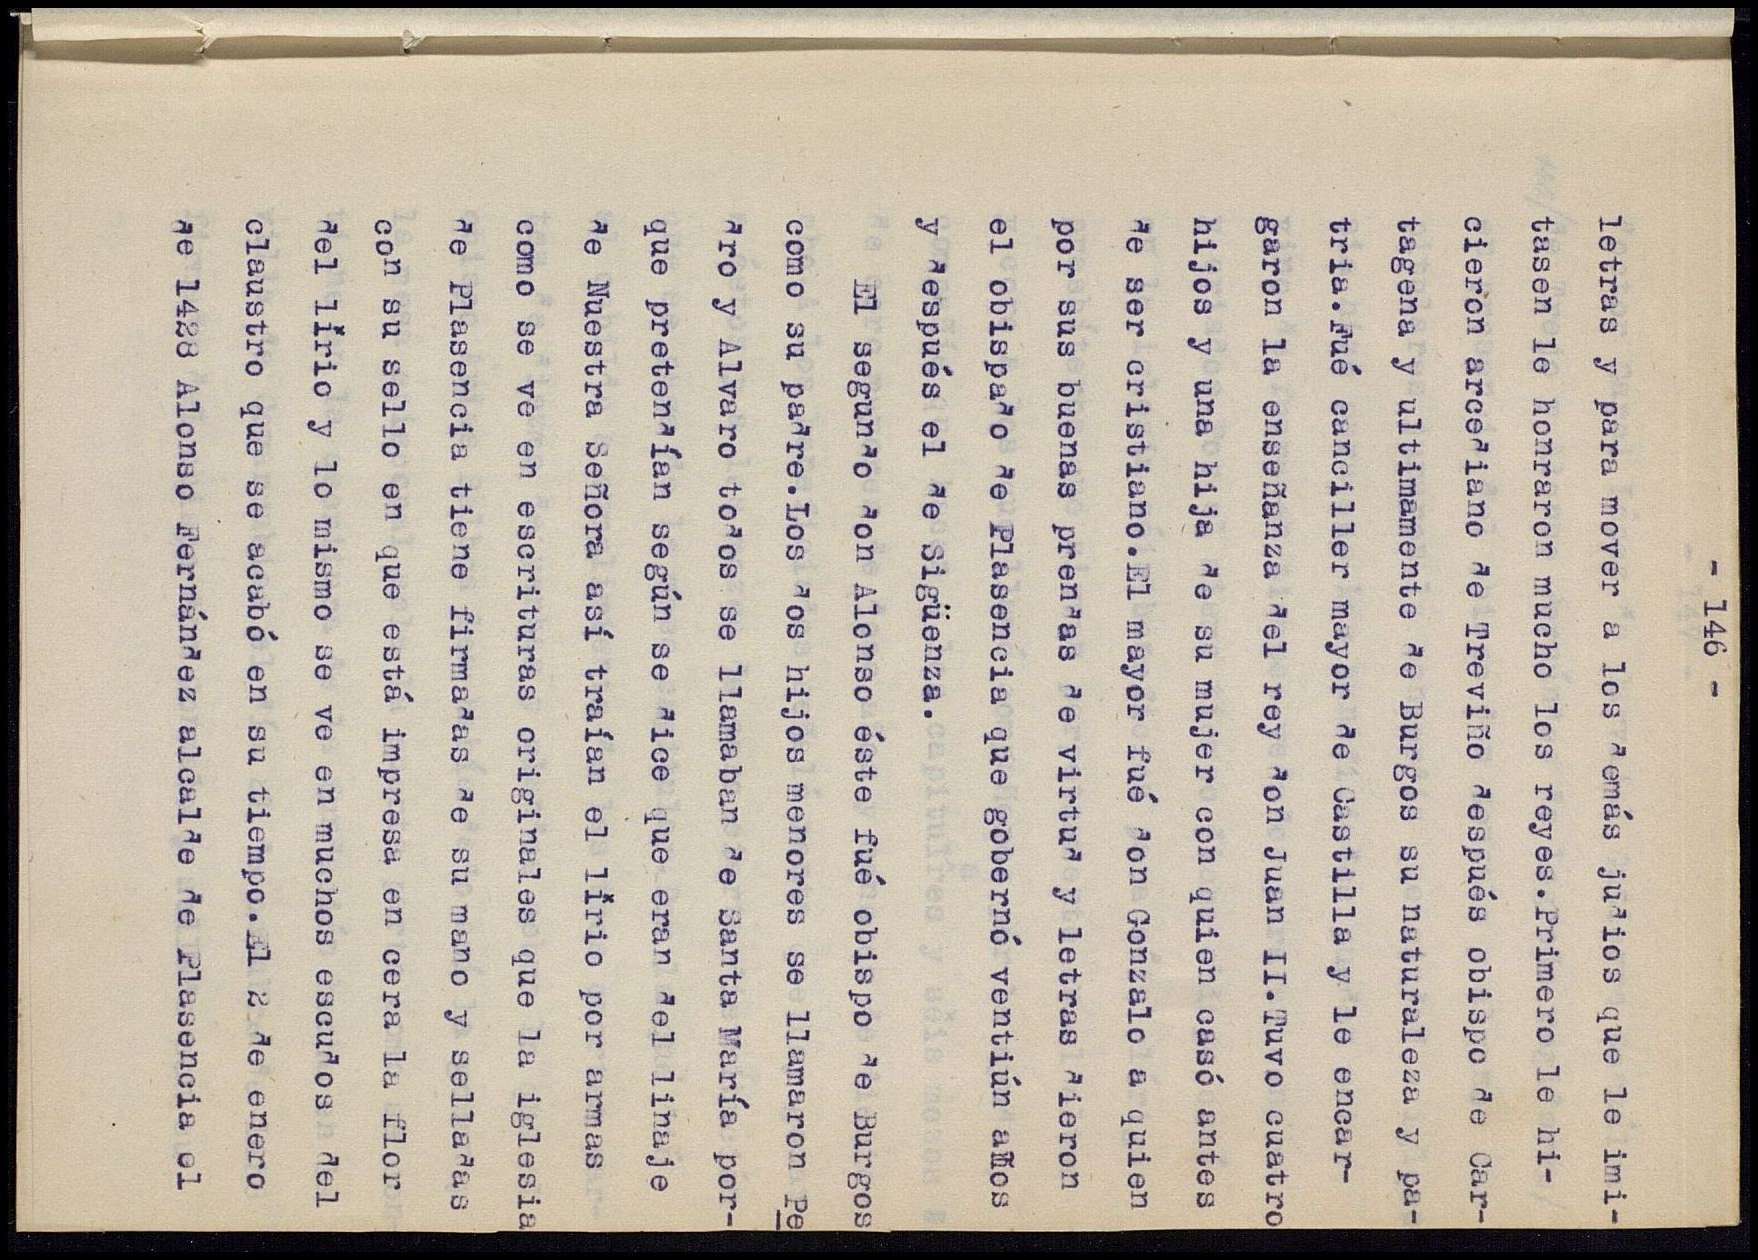 - 146 -
letras y para mover a los demás judios que le imi-
tasen le honraron mucho los reyes.Primero le hi-
cieron arcediano de Treviño después obispo de Car-
tagena y ultimamente de Burgos su naturaleza y pa-
tria.Fué canciller mayor de Castilla y le encar-
garon la enseñanza del rey don Juan II.Tuvo cuatro
hijos y una hija de su mujer con quien casó antes
de ser cristiano.El mayor fué don Gonzalo a quien
por sus buenas prendas de virtud y letras dieron
el obispado de Plasencia que gobernó ventiún años
y después el de Sigüenza.
El segundo don Alonso éste fué obispo de Burgos
como su padre.Los dos hijos menores se llamaron Pe
dro y Alvaro todos se llamaban de Santa María por-
que pretendían según se dice que eran del linaje
de Nuestra Señora así traían el lirio por armas
como se ve en escrituras originales que la iglesia
de Plasencia tiene firmadas de su mano y selladas
con su sello en que está impresa en cera la flor
del lirio y lo mismo se ve en muchos escudos del
claustro que se acabó en su tiempo.El 2 de enero
de 1428 Alonso Fernández alcalde de Plasencia el